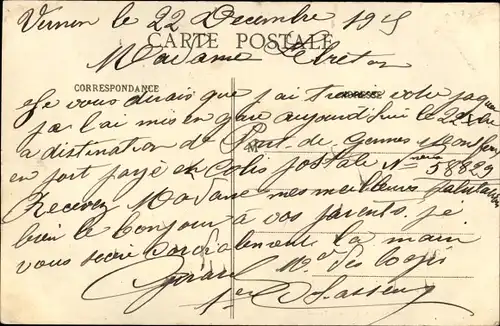 Vernon le 22 Decembre 1915
CARTE POSTALE
Madame Lebreton
CORRESPONDANCE
ADRESSE
Je vous dirais que j'ai votre
je l'ai mis en gare aujourd'hui le 22
a distination de Pont-de-Gennes
en port payé en colis postale N° 58829
Recevez Madame mes meilleurs salutations
bien le bonjour à vos parents je
vous serre cordialement la main
Girard Mal des logis
1er Chasseurs